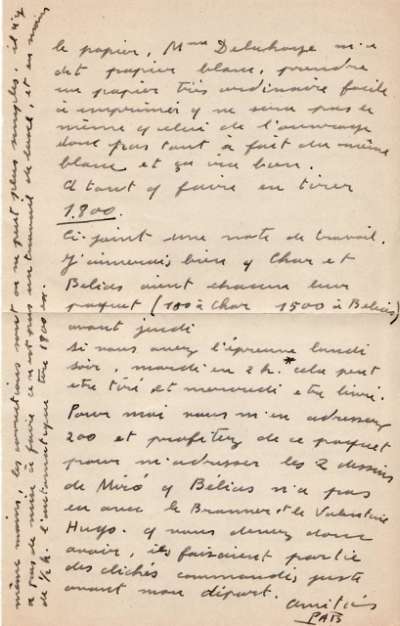 le papier, Mme Delahaye m'a
dit papier blanc, prendre
un papier très ordinaire facile
à imprimer q ne sera pas le
même q celui de l'ouvrage
donc pas tout à fait du même
blanc et ça ira bien.
Il faut q faire en tirer
1.800.
Ci-joint une note de travail.
J'aimerais bien q Char et
Belias aient chacun leur
paquet (100 à Char 1500 à Belias)
avant jeudi
Si vous avez l'épreuve lundi
soir, mardi en 2 h.* cela peut
etre tiré et mercredi etre livré.
Pour moi vous m'en adressez
200 et profitez de ce paquet
pour m'adresser les 2 dessins
de Miró q Belias n'a pas
eu avec le Brauner et le Valentine
Hugo. q vous devez donc
avoir, ils faisaient partie
des clichés commandés juste
avant mon départ. amitiés
PAB
même moins, les corrections sont on ne peut plus simples. il n'y
a pas de mise à faire ce n'est pas un travail de luxe, et en moins
de ½ h. l'automatique tire 1800 ex.